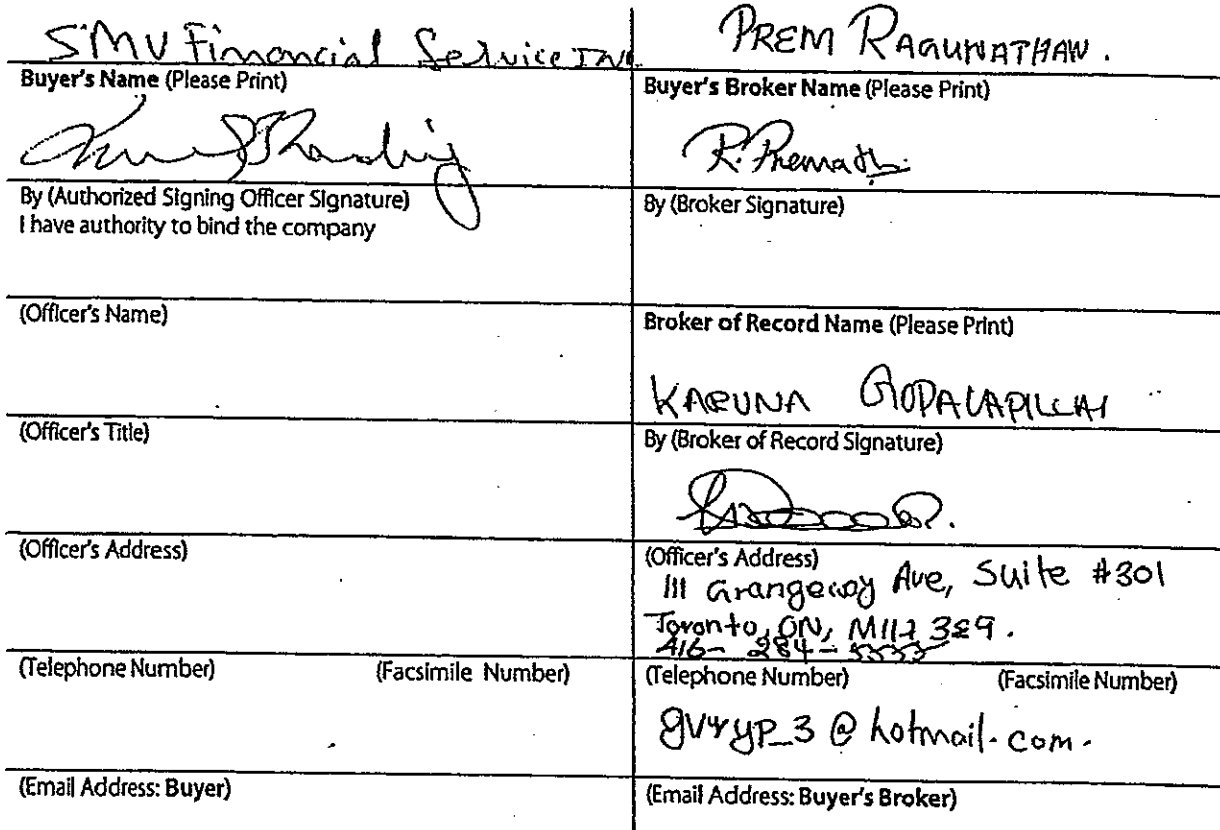 SMV Financial Service INC.
Buyer's Name (Please Print)
By (Authorized Signing Officer Signature)
I have authority to bind the company
(Officer's Name)
(Officer's Title)
(Officer's Address)
(Telephone Number) (Facsimile Number)
(Email Address: Buyer)
PREM RAGUNATHAN.
Buyer's Broker Name (Please Print)
R. Premnath
By (Broker Signature)
Broker of Record Name (Please Print)
KARUNA GOPALAPILLAI
By (Broker of Record Signature)
(Officer's Address)
111 Grangeway Ave, Suite #301
Toronto, ON, M1H 3E9.
416-284-5555
(Telephone Number) (Facsimile Number)
@ hotmail.com.
(Email Address: Buyer's Broker)